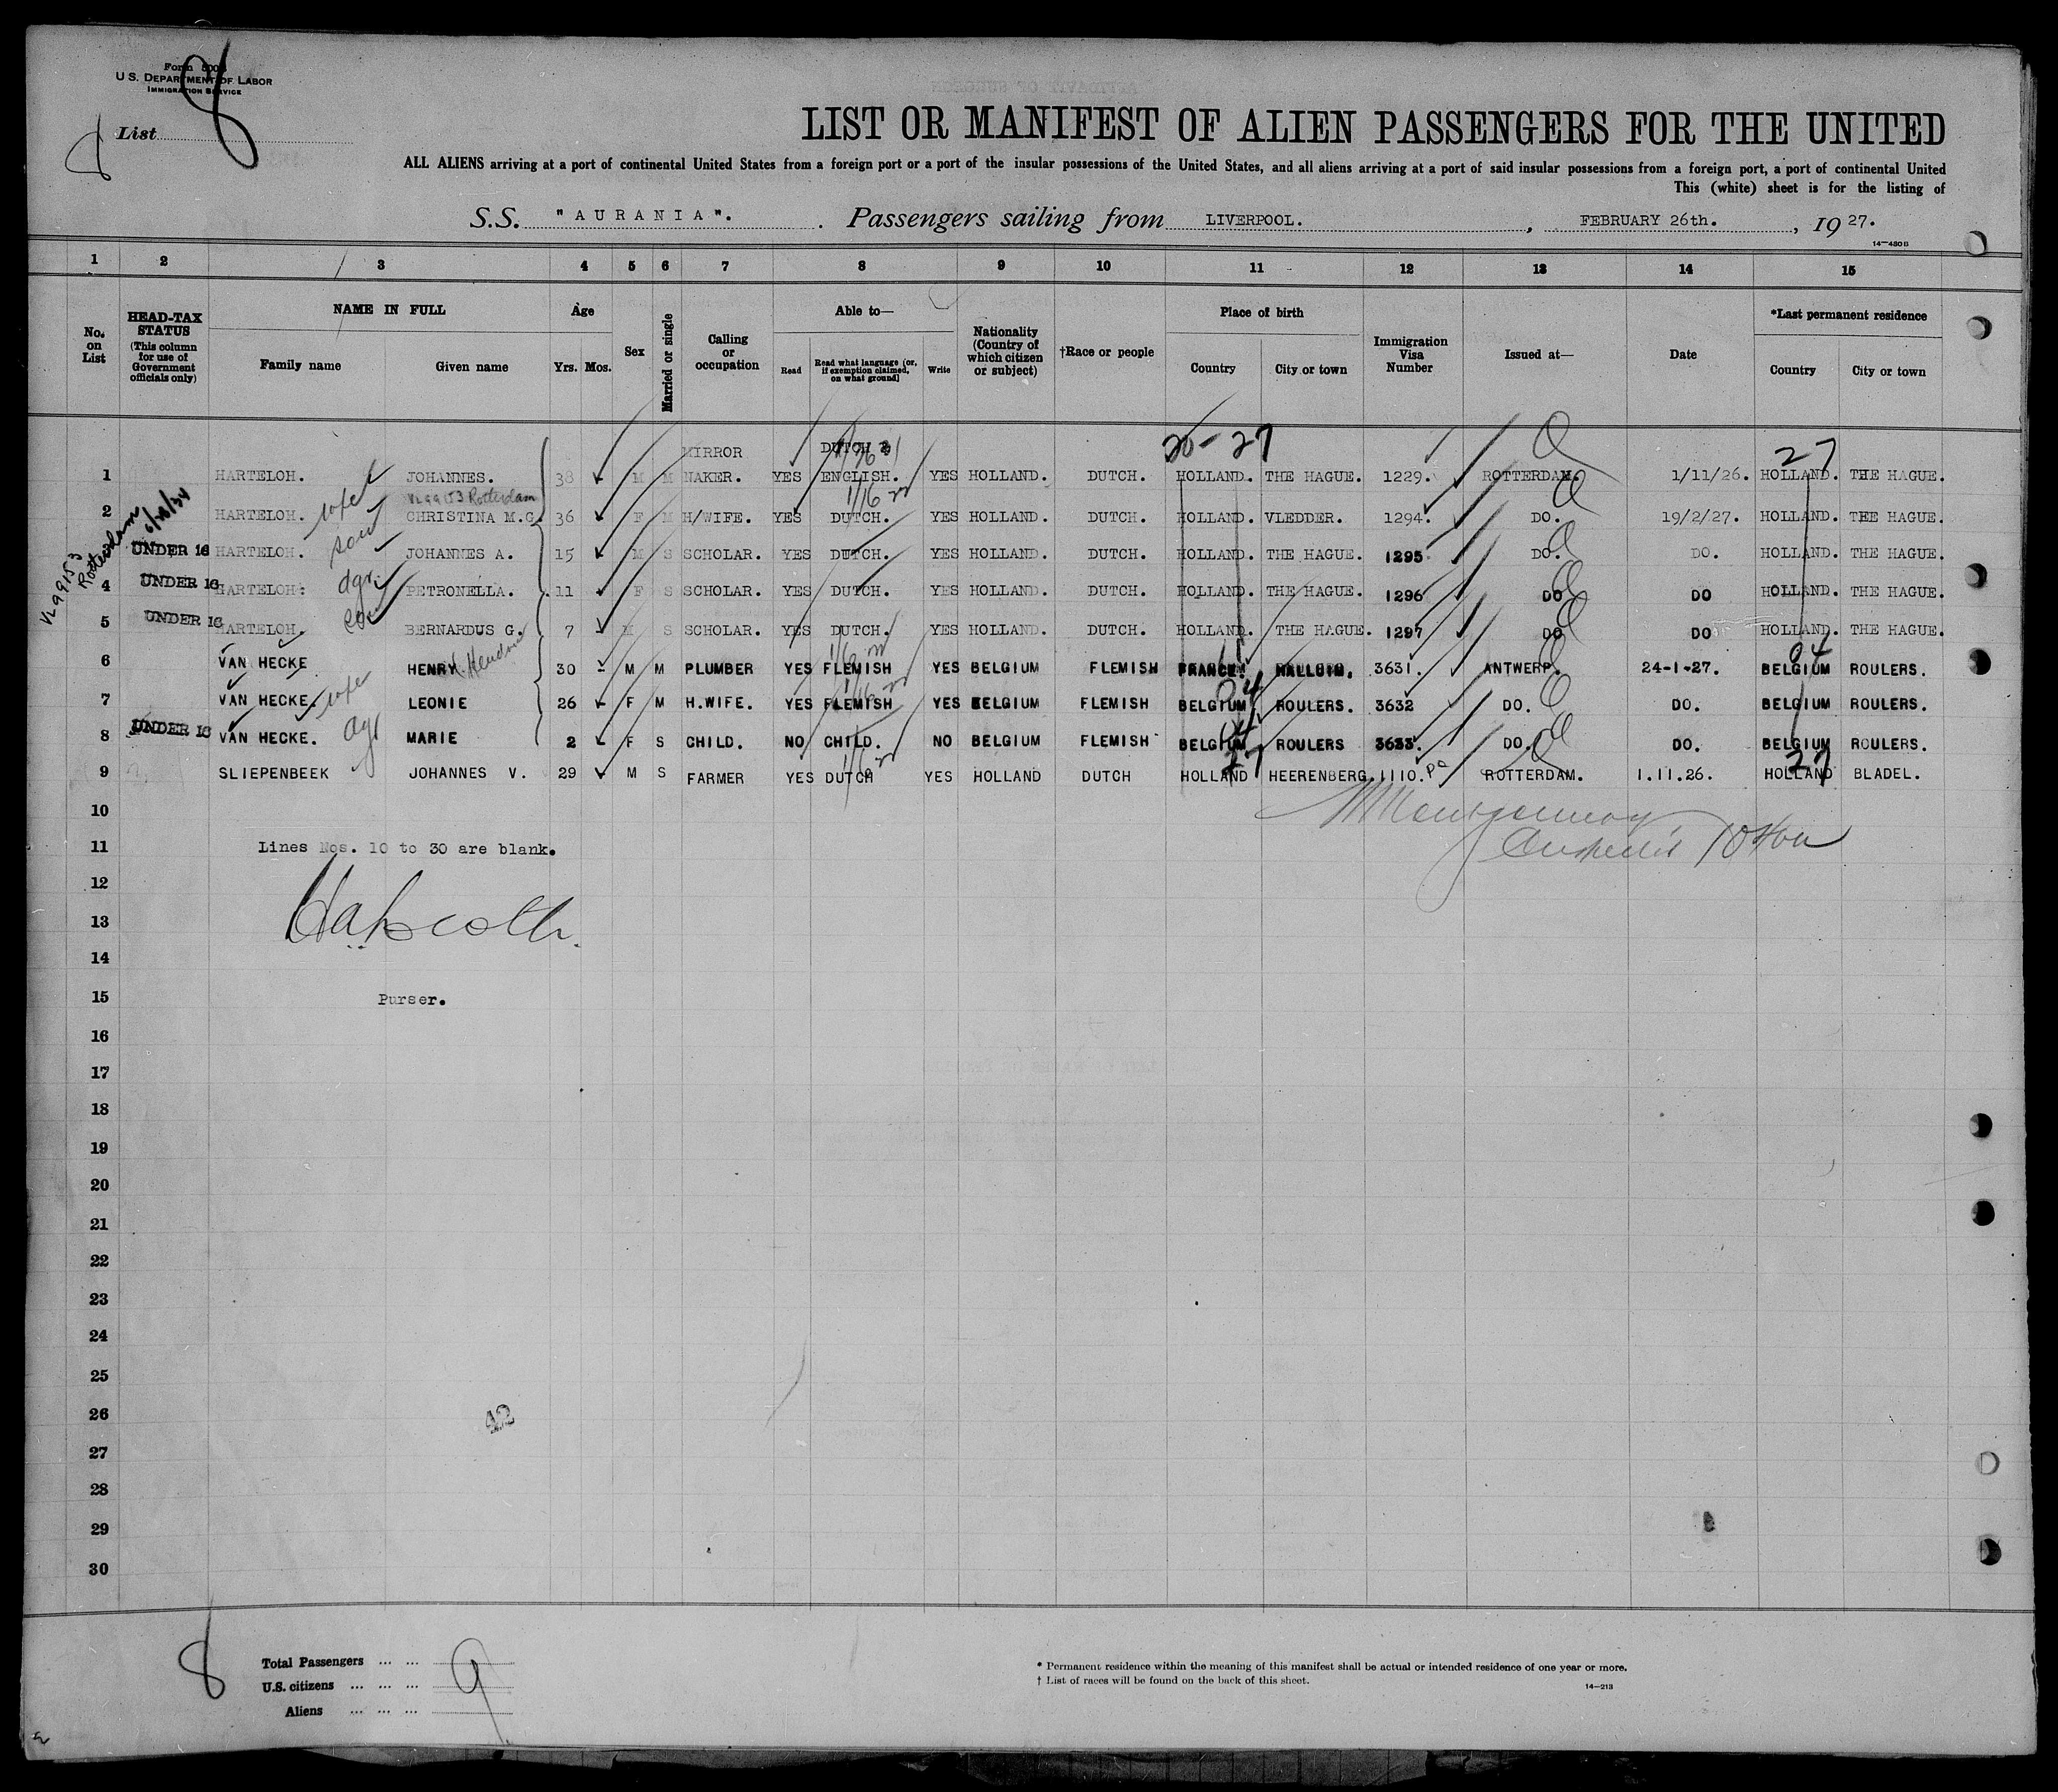 Form 500
U. S. DEPARTMENT OF LABOR
IMMIGRATION SERVICE
List 8
8
LIST OR MANIFEST OF ALIEN PASSENGERS FOR THE UNITED
ALL ALIENS arriving at a port of continental United States from a foreign port or a port of the insular possessions of the United States, and all aliens arriving at a port of said insular possessions from a foreign port, a port of continental United
This (white) sheet is for the listing of
S.S. "AURANIA". Passengers sailing from LIVERPOOL. , FEBRUARY 26th. , 19 27.
14—480B
1 2 3 4 5 6 7 8 9 10 11 12 13 14 15
No. on List
HEAD-TAX STATUS (This column for use of Government officials only)
NAME IN FULL
Family name Given name
Age
Yrs. Mos.
Sex
Married or single
Calling or occupation
Able to—
Read Read what language (or, if exemption claimed, on what ground) Write
Nationality (Country of which citizen or subject)
†Race or people
Place of birth
Country City or town
Immigration Visa Number
Issued at—
Date
*Last permanent residence
Country City or town
20-27 27
1 HARTELOH. JOHANNES. 38 M M MIRROR MAKER. YES DUTCH & ENGLISH. YES HOLLAND. DUTCH. HOLLAND. THE HAGUE. 1229. ROTTERDAM. 1/11/26. HOLLAND. THE HAGUE.
VL99153 Rotterdam
2 HARTELOH. wife CHRISTINA M.C. 36 F M H/WIFE. YES DUTCH. YES HOLLAND. DUTCH. HOLLAND. VLEDDER. 1294. DO. 19/2/27. HOLLAND. THE HAGUE.
UNDER 16 HARTELOH. son JOHANNES A. 15 M S SCHOLAR. YES DUTCH. YES HOLLAND. DUTCH. HOLLAND. THE HAGUE. 1295 DO. DO. HOLLAND. THE HAGUE.
4 UNDER 16 HARTELOH. dgr. PETRONELLA. 11 F S SCHOLAR. YES DUTCH. YES HOLLAND. DUTCH. HOLLAND. THE HAGUE. 1296 DO DO HOLLAND. THE HAGUE.
5 UNDER 16 HARTELOH. son BERNARDUS G. 7 M S SCHOLAR. YES DUTCH. YES HOLLAND. DUTCH. HOLLAND. THE HAGUE. 1297 DO DO HOLLAND. THE HAGUE.
6 VAN HECKE HENRY 30 M M PLUMBER YES FLEMISH YES BELGIUM FLEMISH FRANCE. HALLUIN. 3631. ANTWERP. 24-1-27. BELGIUM ROULERS.
7 VAN HECKE. wife LEONIE 26 F M H.WIFE. YES FLEMISH YES BELGIUM FLEMISH BELGIUM ROULERS. 3632 DO. DO. BELGIUM ROULERS.
8 UNDER 16 VAN HECKE. dgr MARIE 2 F S CHILD. NO CHILD. NO BELGIUM FLEMISH BELGIUM ROULERS 3633. DO. DO. BELGIUM ROULERS.
9 SLIEPENBEEK JOHANNES V. 29 M S FARMER YES DUTCH YES HOLLAND DUTCH HOLLAND HEERENBERG. 1110. ROTTERDAM. 1.11.26. HOLLAND BLADEL.
VL99153
Rotterdam
10
11 Lines Nos. 10 to 30 are blank.
12
13
14
15 Purser.
16
17
18
19
20
21
22
23
24
25
26
42
27
28
29
30
8
Total Passengers ... ... 9
U.S. citizens ... ... ...
Aliens ... ... ...
* Permanent residence within the meaning of this manifest shall be actual or intended residence of one year or more.
† List of races will be found on the back of this sheet.
14—213